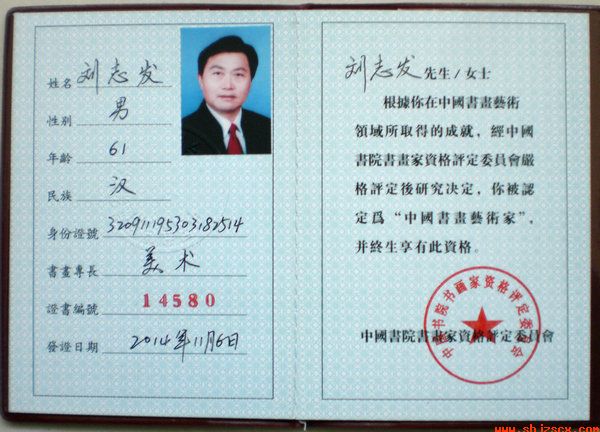 姓名 刘志发
性别 男
年龄 61
民族 汉
身份證號 320911195303182514
書畫專長 美术
證書編號 14580
發證日期 2014年11月6日
刘志发 先生/女士
根據你在中國書畫藝術
領域所取得的成就，經中國
書院書畫家資格評定委員會嚴
格評定後研究决定，你被認
定爲“中國書畫藝術家”，
并終生享有此資格。
中國書院書畫家資格評定委員會
中国书院书画家资格评定委员会
www.sbjzscx.com